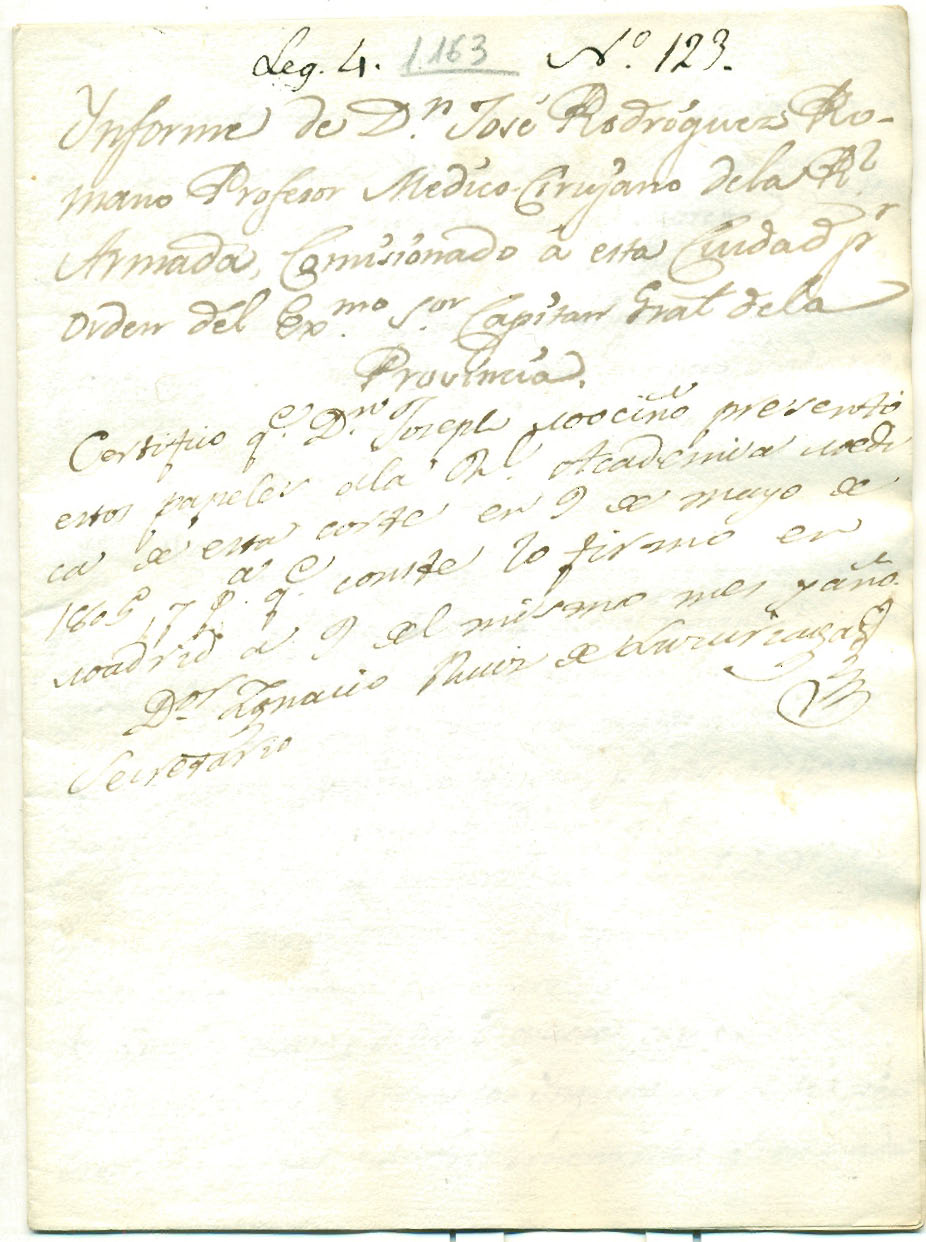 Leg. 4. 1163 Nº. 123.
Ynforme de D.n José Rodríguez Ro-
mano Profesor Medico-Cirujano dela Rl.
Armada, Comisionado á esta Ciudad pr
Orden del Ex.mo S.or Capitan Gral dela
Provincia.
Certifico q.e D.n Joseph Mociño presentó
estos papeles ala Rl. Academia Medi
ca de esta corte en 9 de mayo de
1805, y p.a q.e conste lo firmo en
Madrid a 9 del mismo mes y año.
D.or Ignacio Ruiz de Luzuriaga
Secretario